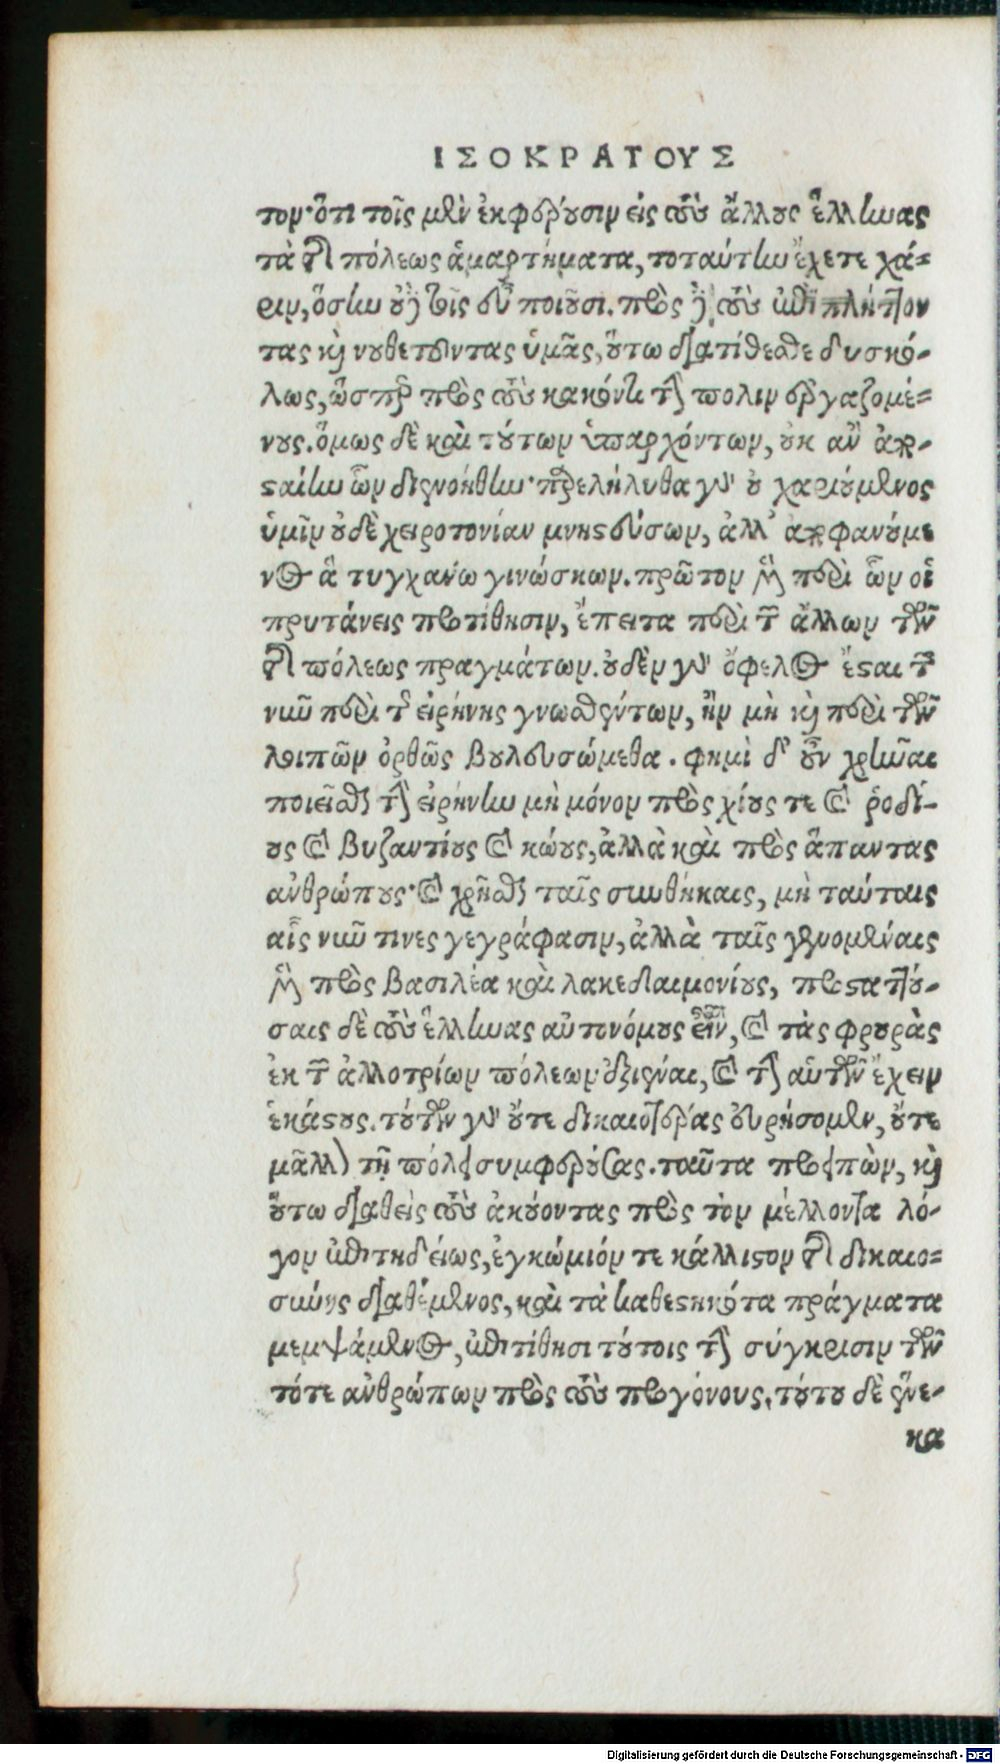 ΙΣΟΚΡΑΤΟΥΣ
τον· ὅτι τοῖς μὲν ἐκφέρουσιν εἰς τοὺς ἄλλους ἕλληνας
τὰ τῆς πόλεως ἁμαρτήματα, τοσαύτην ἔχετε χά-
ριν, ὅσην οὐδὲ τοῖς εὖ ποιοῦσι. πρὸς δὲ τοὺς ἐπιπλήττον
τας καὶ νουθετοῦντας ὑμᾶς, οὕτω διατίθεσθε δυσκό-
λως, ὥσπερ πρὸς τοὺς κακόν τι τὴν πόλιν ἐργαζομέ-
νους. ὅμως δὲ καὶ τούτων ὑπαρχόντων, οὐκ ἂν ἀπο-
σταίην ὧν διενοήθην· παρελήλυθα γὰρ οὐ χαριούμενος
ὑμῖν οὐδὲ χειροτονίαν μνηστεύσων, ἀλλ' ἀποφανούμε
νος ἃ τυγχάνω γινώσκων. πρῶτον μὲν περὶ ὧν οἱ
πρυτάνεις προτίθησιν, ἔπειτα περὶ τῶν ἄλλων τῶν
τῆς πόλεως πραγμάτων. οὐδὲν γὰρ ὄφελος ἔσται τῶν
νῦν περὶ τῆς εἰρήνης γνωσθέντων, ἢν μὴ καὶ περὶ τῶν
λοιπῶν ὀρθῶς βουλευσώμεθα. φημὶ δ' οὖν χρῆναι
ποιεῖσθαι τὴν εἰρήνην μὴ μόνον πρὸς χίους τε καὶ ῥοδί-
ους καὶ βυζαντίους καὶ κώους, ἀλλὰ καὶ πρὸς ἅπαντας
ἀνθρώπους· καὶ χρῆσθαι ταῖς συνθήκαις, μὴ ταύταις
αἷς νῦν τινες γεγράφασιν, ἀλλὰ ταῖς γενομέναις
μὲν πρὸς βασιλέα καὶ λακεδαιμονίους, προσταττού-
σαις δὲ τοὺς ἕλληνας αὐτονόμους εἶναι, καὶ τὰς φρουρὰς
ἐκ τῶν ἀλλοτρίων πόλεων ἐξιέναι, καὶ τὴν αὑτῶν ἔχειν
ἑκάστους. τούτων γὰρ οὔτε δικαιοτέρας εὑρήσομεν, οὔτε
μᾶλλον τῇ πόλει συμφερούσας. ταῦτα προειπὼν, καὶ
οὕτω διαθεὶς τοὺς ἀκούοντας πρὸς τὸν μέλλοντα λό-
γον ἐπιτηδείως, ἐγκώμιόν τε κάλλιστον τῆς δικαιο-
σύνης διαθέμενος, καὶ τὰ καθεστηκότα πράγματα
μεμψάμενος, ἐπιτίθησι τούτοις τὴν σύγκρισιν τῶν
τότε ἀνθρώπων πρὸς τοὺς προγόνους. τούτου δὲ ἕνε-
κα
Digitalisierung gefördert durch die Deutsche Forschungsgemeinschaft - DFG